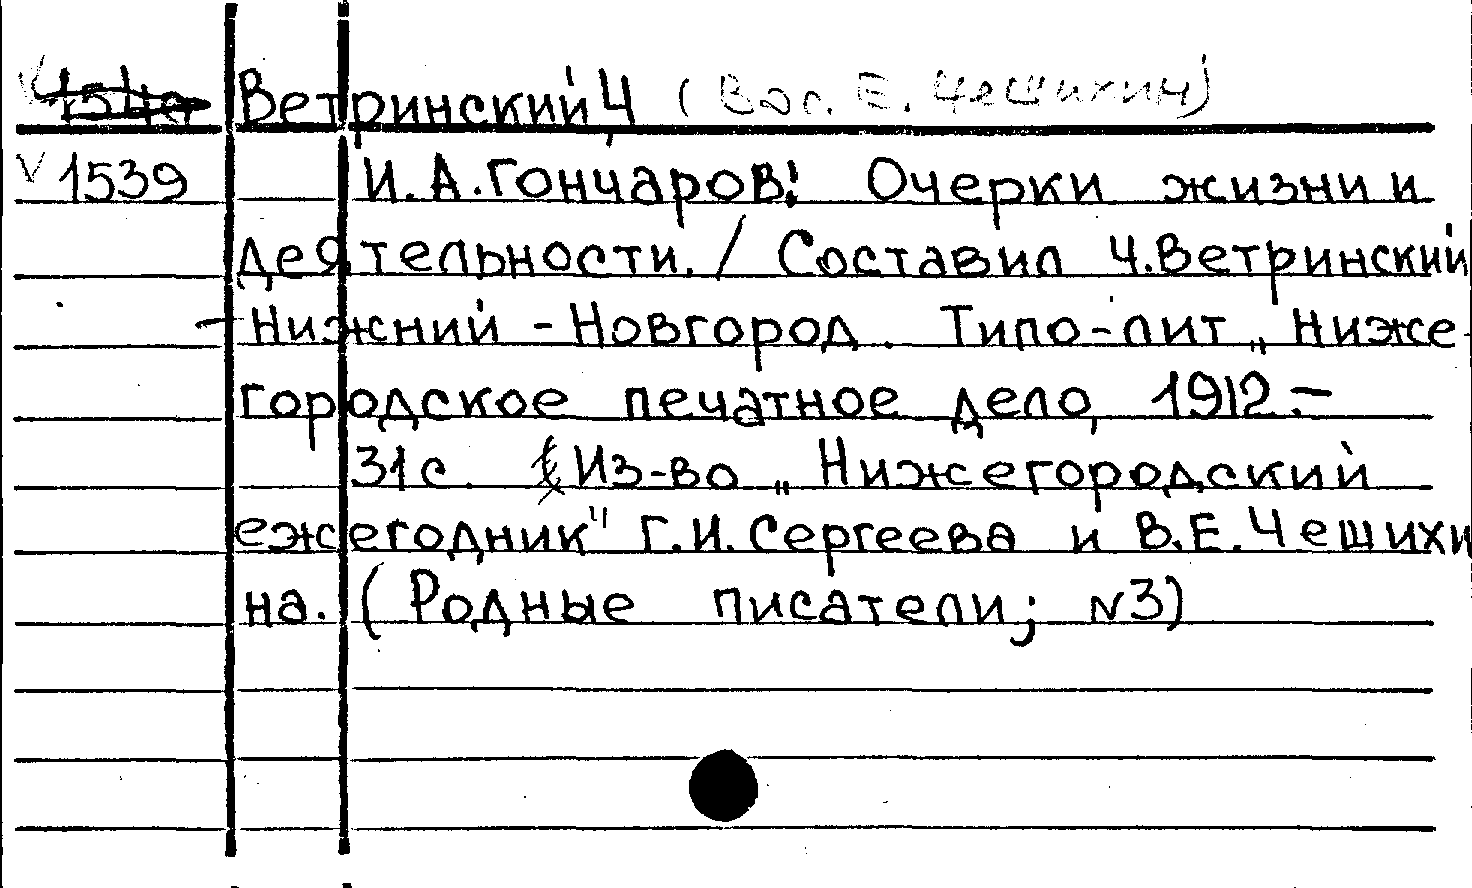 Ветринский, Ч (Вас. Е. Чешихин)
1539 И.А.Гончаров: Очерки жизни и
деятельности. / Составил Ч.Ветринский
- Нижний - Новгород. Типо-лит „Ниже-
городское печатное дело, 1912.-
31с. Из-во „Нижегородский
ежегодник" Г.И.Сергеева и В.Е.Чешихи
на. (Родные писатели; N3)